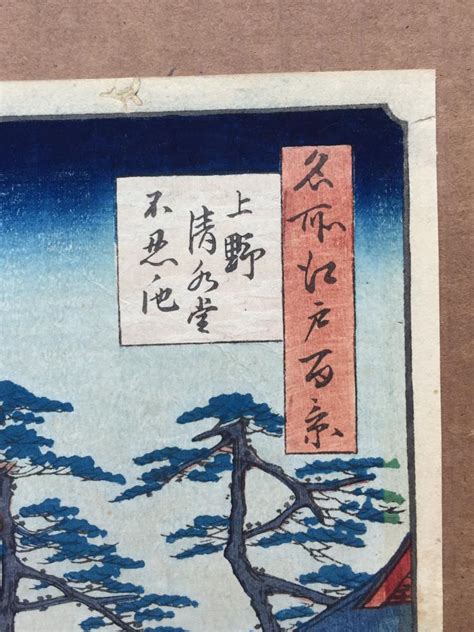 名所江戸百景
上野
清水堂
不忍池